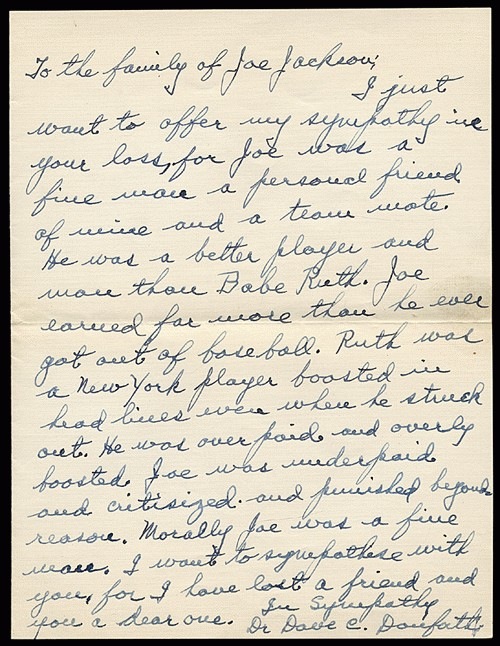 To the family of Joe Jackson;
I just
want to offer my sympathy in
your loss, for Joe was a
fine man a personal friend
of mine and a team mate.
He was a better player and
man than Babe Ruth. Joe
earned far more than he ever
got out of baseball. Ruth was
a New York player boosted in
head lines even when he struck
out. He was over paid and overly
boosted. Joe was underpaid
and critisized and punished beyond
reason. Morally Joe was a fine
man. I want to sympathese with
you, for I have lost a friend and
you a dear one.
In Sympathy
Dr Dave C. Danforth